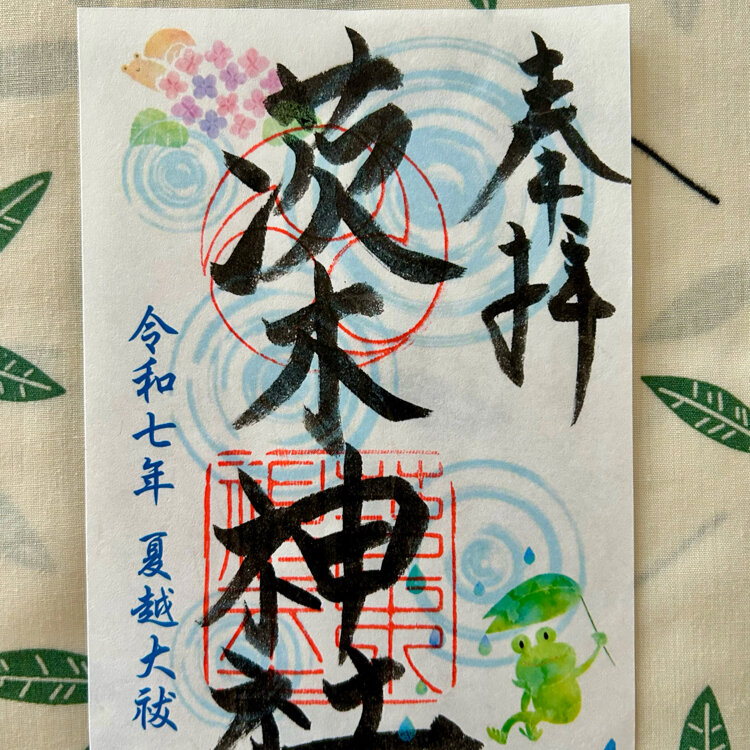 奉拝
茨木神社
令和七年 夏越大祓